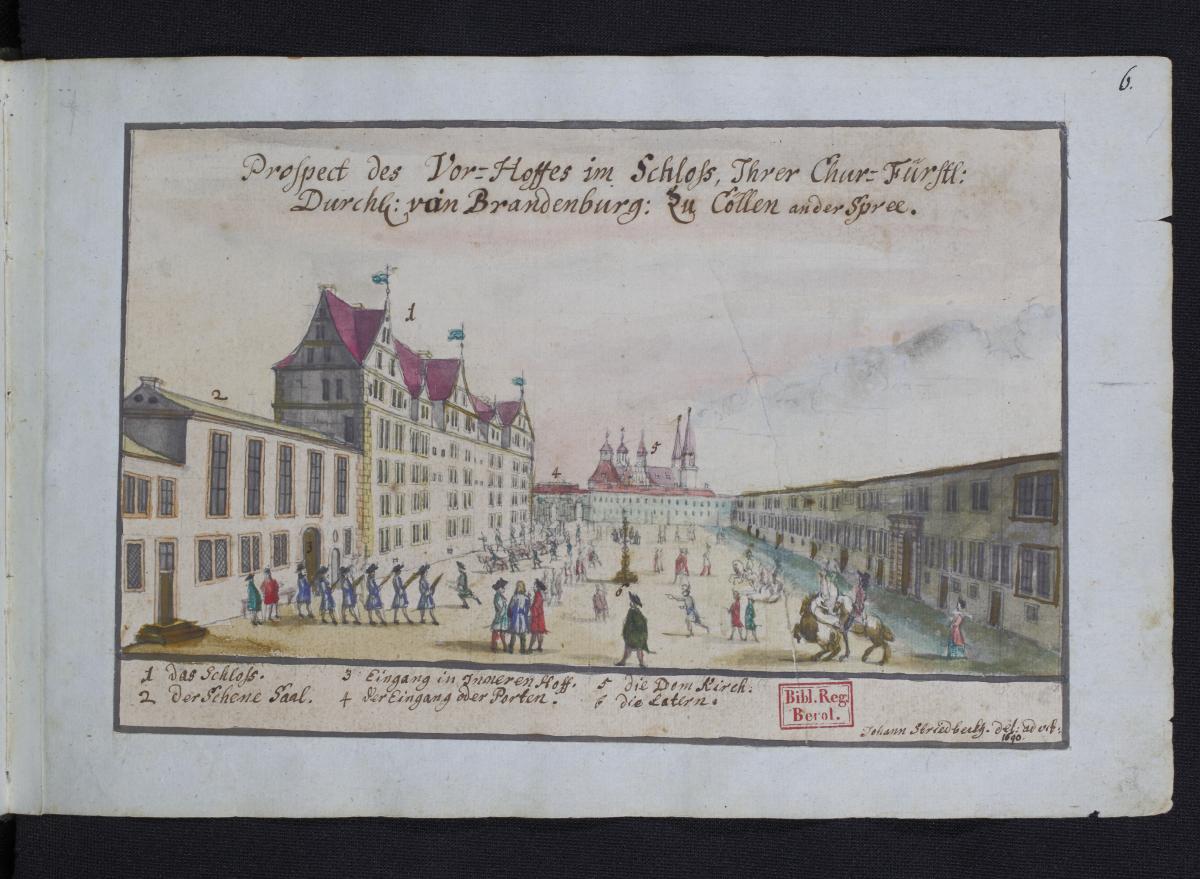 6.
Prospect des Vor=Hoffes im Schloss, Ihrer Chur=Fürstl:
Durchl: van Brandenburg: Zu Cöllen an der Spree.
1
2
3
4
5
6
1 das Schloss. 3 Eingang in Inneren Hoff. 5 die Dom Kirch.
2 der Schene Saal. 4 der Eingang oder Porten. 6 die Latern.
Bibl. Reg.
Berol.
Johann Stridbeckh. del: ad viv:
1690.